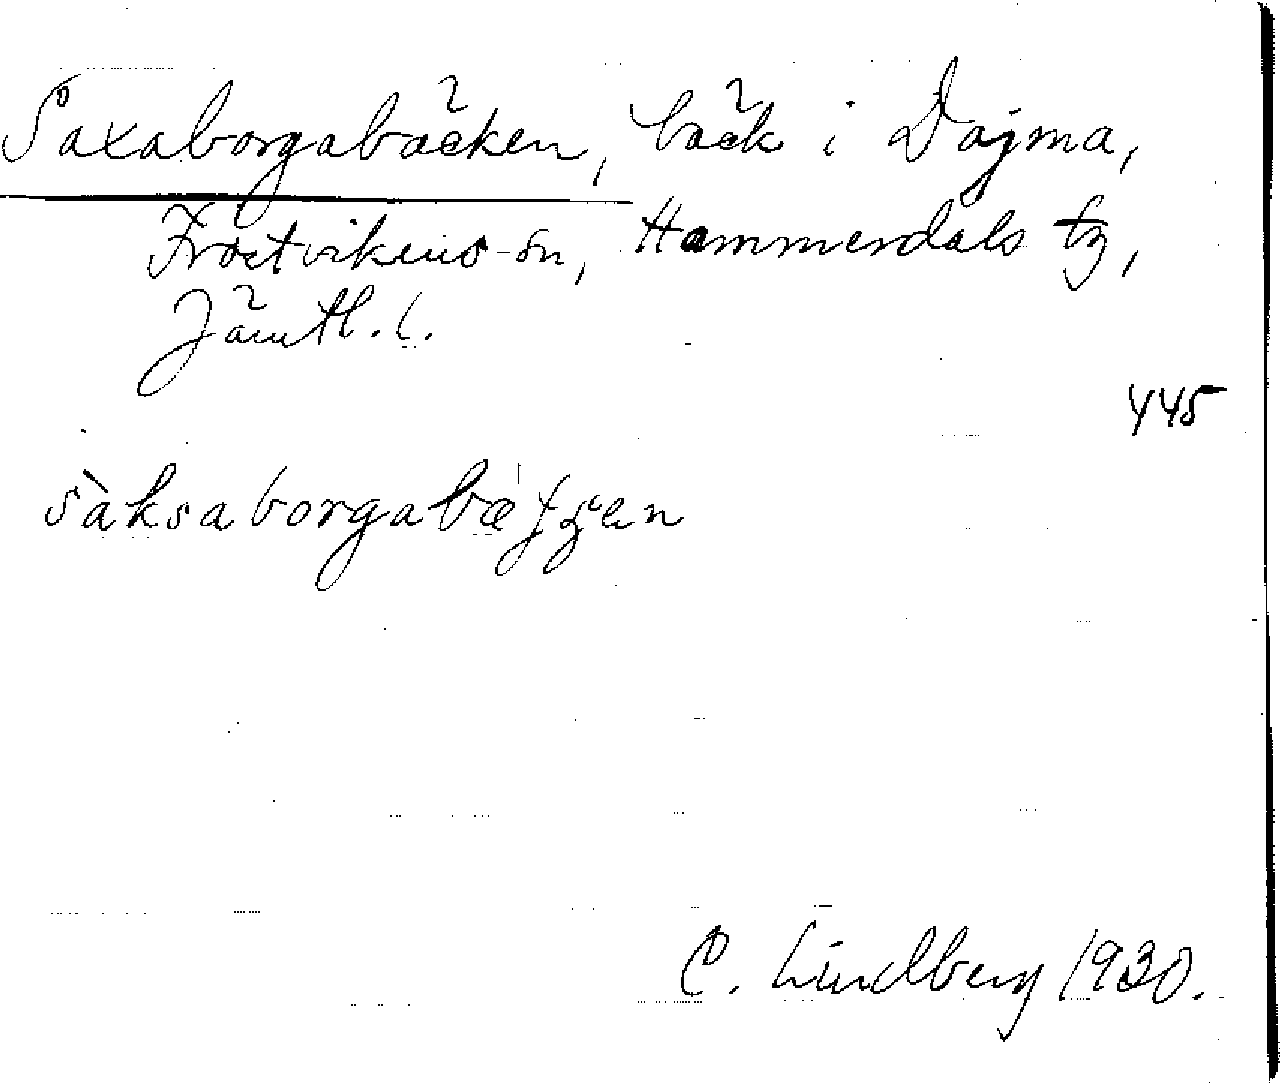 Saxaborgabäcken, bäck i Dajma,
Frostvikens sn, Hammerdals tg,
Jämtl. l.
445
C. Lindberg 1930.